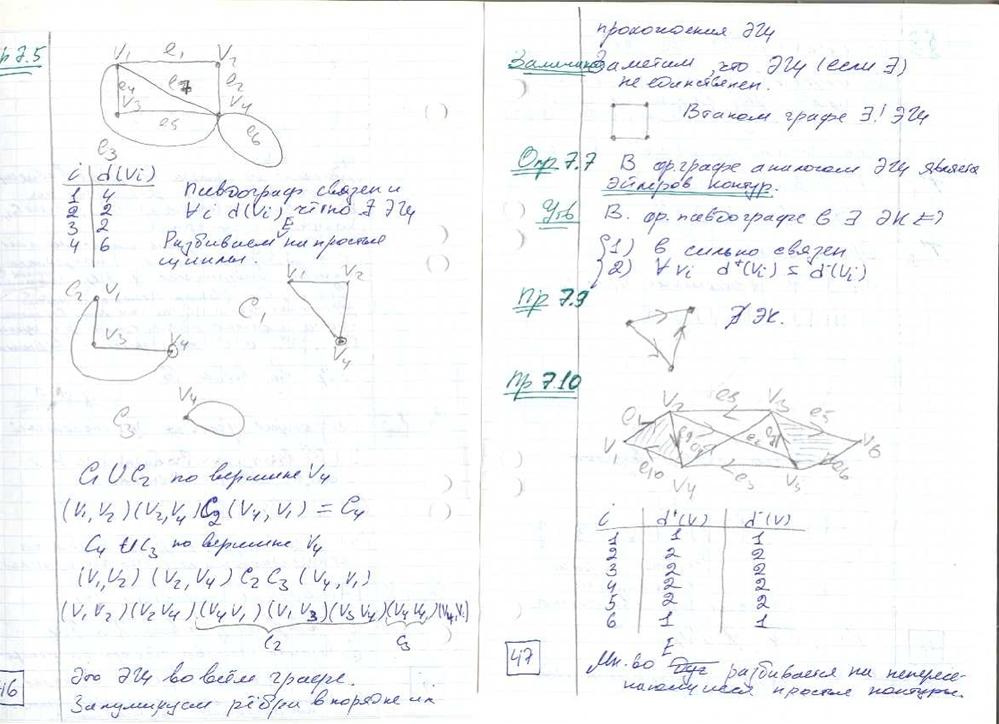 Пр 7.5
V1 e1 V2
e4 e7 e2
V3 e5 V4
e3 e6
i d(Vi)
1 4
2 2
3 2
4 6
Псевдограф связен и
∀i d(Vi) чётно ∃ ЭЦ
Разбиваем E на простые
циклы.
C2 V1
V3 V4
C1 V1 V2
V4
V4
C3
C1 ∪ C2 по вершине V4
(V1,V2)(V2,V4)C2(V4,V1) = C4
C4 ∪ C3 по вершине V4
(V1,V2)(V2,V4)C2C3(V4,V1)
(V1 V2)(V2 V4)(V4 V1)(V1 V3)(V3 V4)(V4 V4)(V4,V1)
C2 C3
Это ЭЦ во всём графе.
Занумеруем рёбра в порядке их
46
прохождения ЭЦ
Замечание Заметим, что ЭЦ (если ∃)
не единственен.
В таком графе ∃! ЭЦ
Опр 7.7 В ор.графе аналогом ЭЦ является
Эйлеров контур.
Ут6 В. ор. псевдографе G ∃ ЭК ⇔
1) G сильно связен
2) ∀ Vi d+(Vi) = d-(Vi)
Пр 7.9
∄ ЭК.
Пр 7.10
V2 e8 V3 e5
e1
V1 V6
e10 V4 e3 V5 e6
i d+(V) d-(V)
1 1 1
2 2 2
3 2 2
4 2 2
5 2 2
6 1 1
47
E
Мн-во дуг разбивается на непересе-
кающиеся простые контуры.